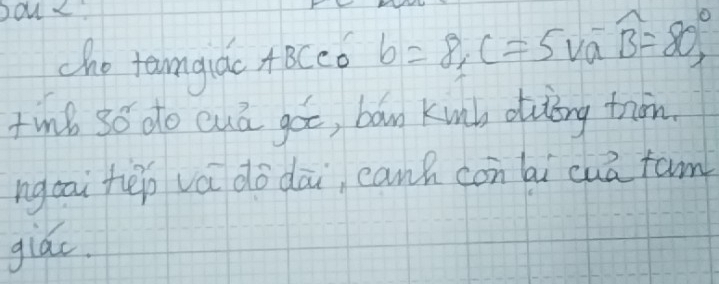 Câu 2
Cho tam giác ABC có b = 8, c = 5 và B̂ = 80°,
tính số đo của góc, bán kính đường tròn
ngoại tiếp và độ dài, cạnh còn lại của tam
giác.